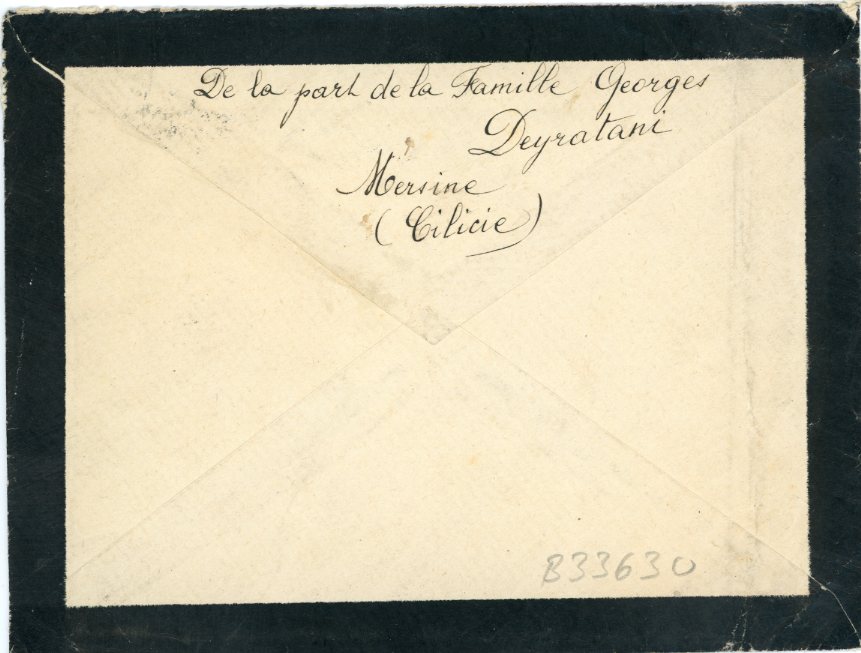 De la part de la Famille Georges
Deyratani
Mersine
(Cilicie)
833630